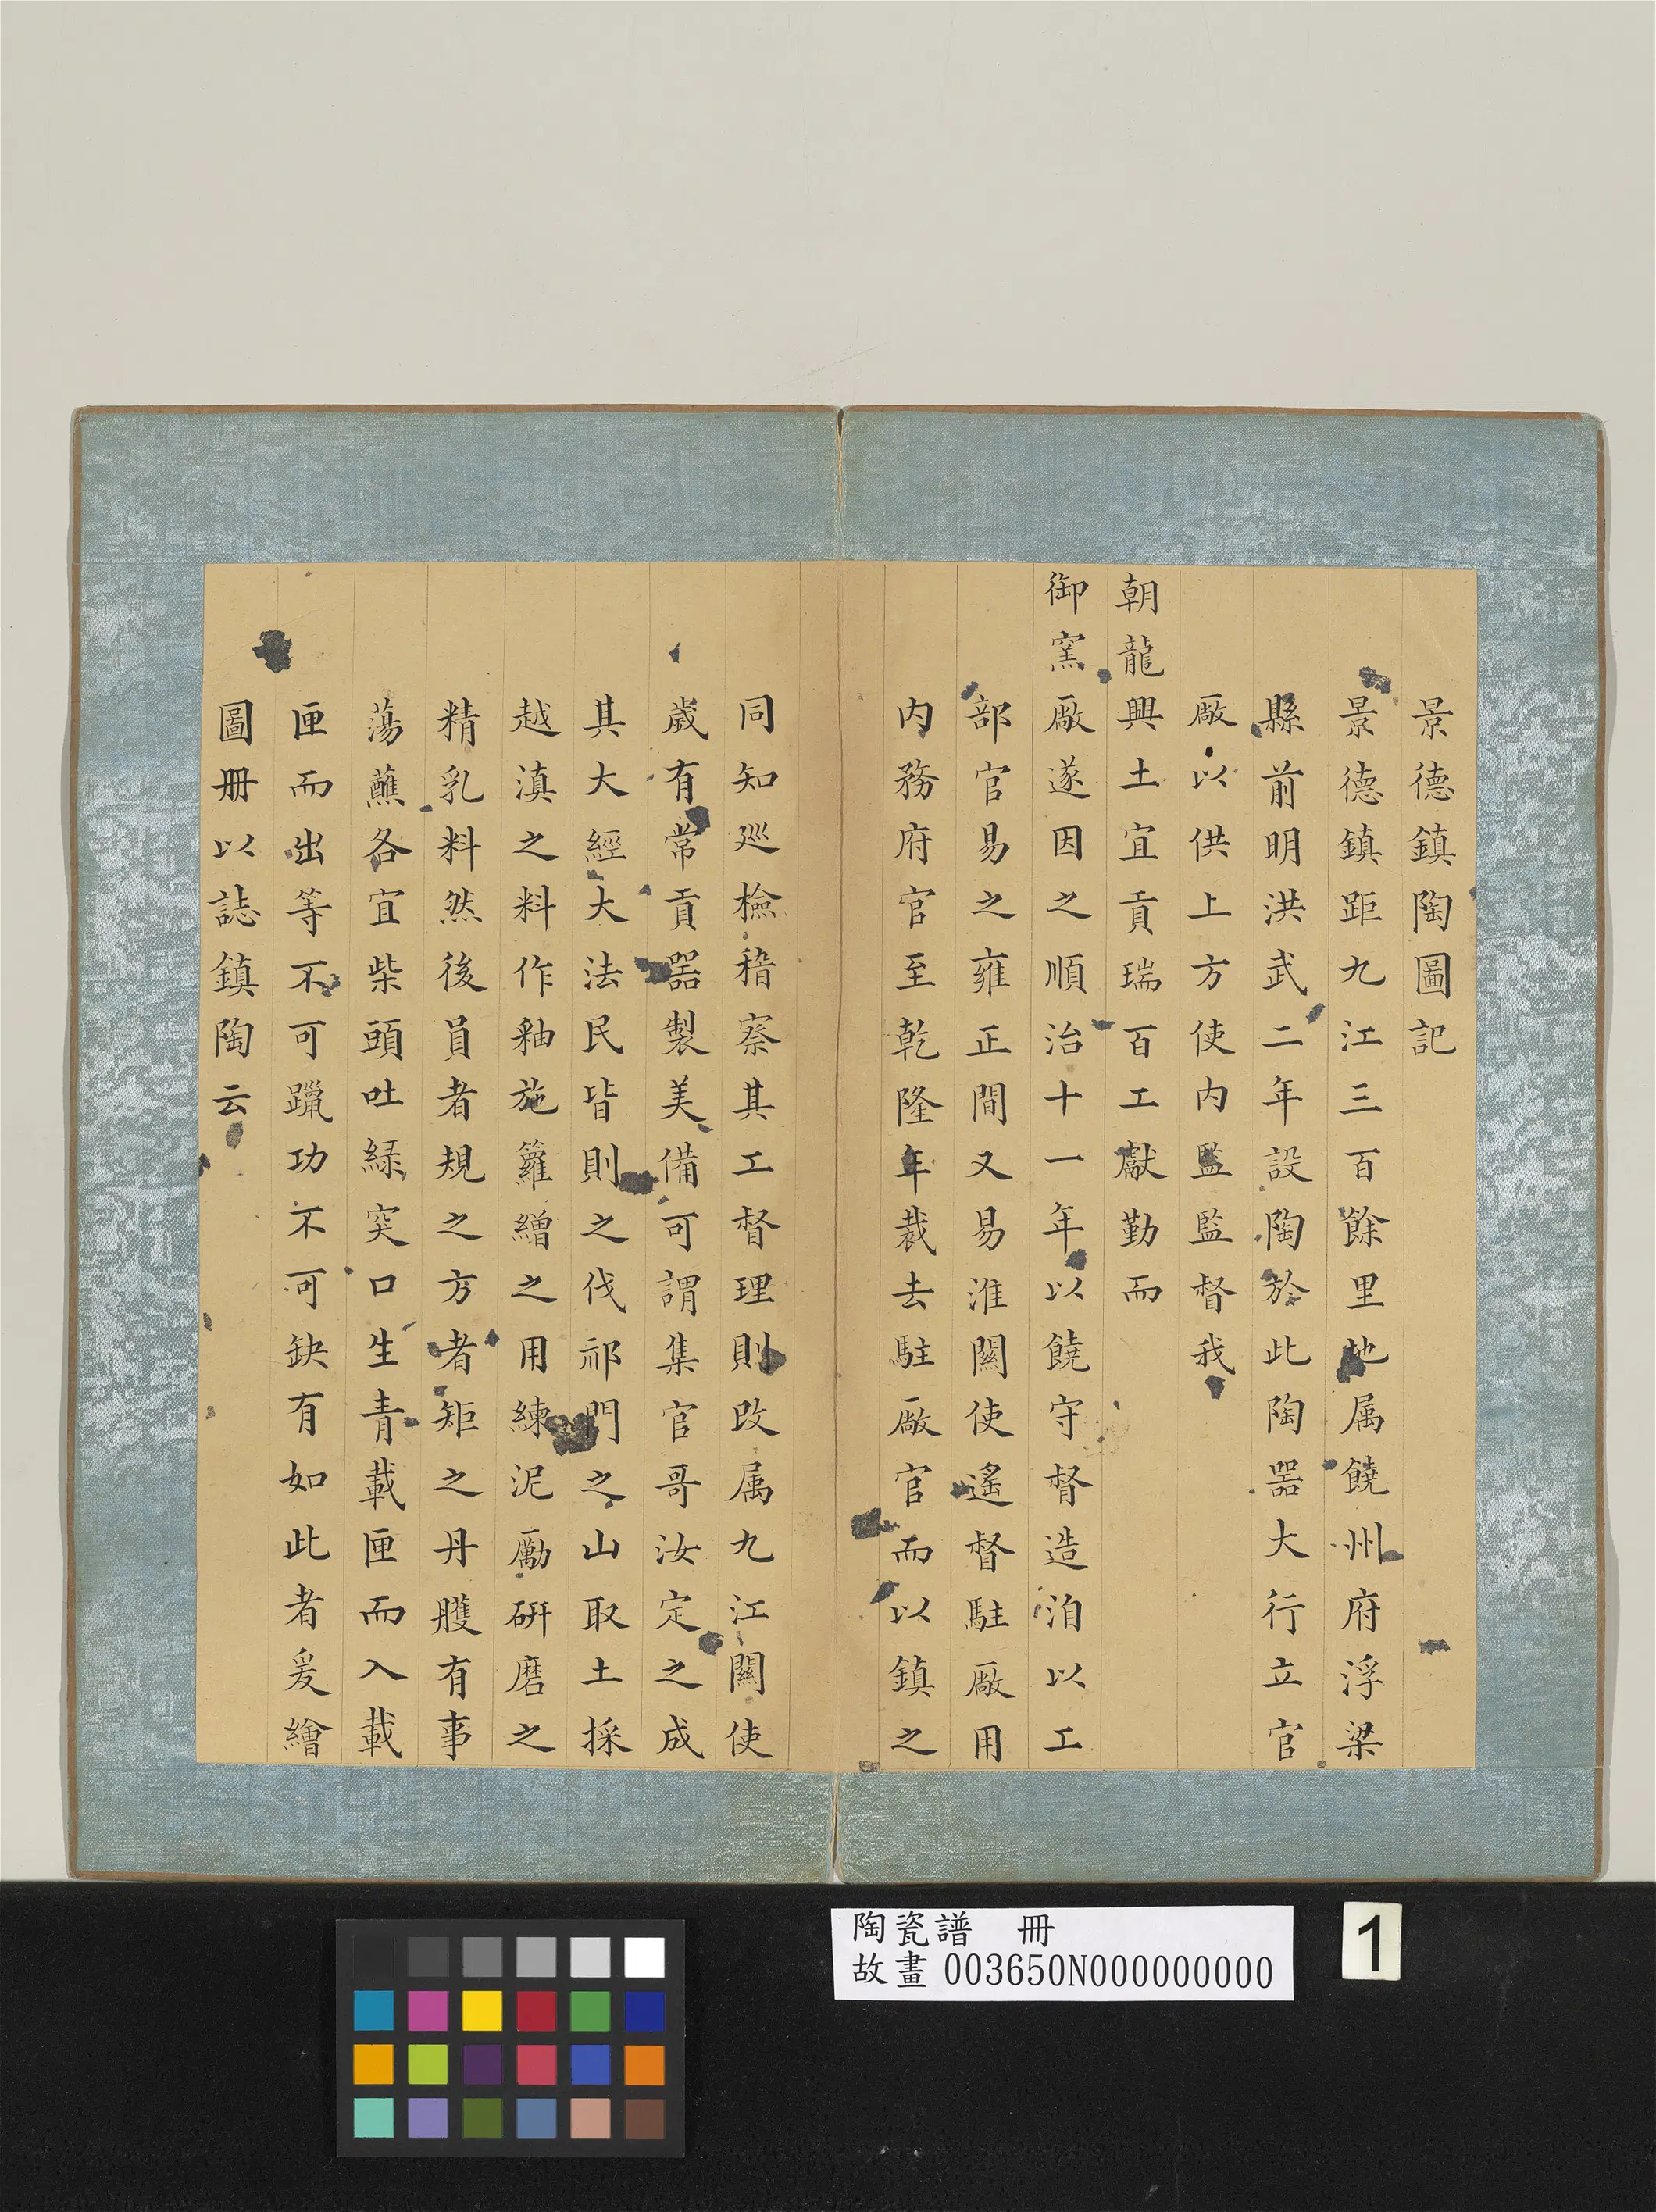 景德鎮陶圖記
景德鎮距九江三百餘里地属饒州府浮梁
縣前明洪武二年設陶於此陶器大行立官
廠以供上方使内監監督我
朝龍興土宜貢瑞百工獻勤而
御窯廠遂因之順治十一年以饒守督造洎以工
部官易之雍正間又易淮關使遙督駐廠用
内務府官至乾隆年裁去駐廠官而以鎮之
同知巡檢稽察其工督理則改属九江關使
歲有常貢器製美備可謂集官哥汝定之成
其大經大法民皆則之伐祁門之山取土採
越滇之料作釉施籮繒之用練泥勵硏磨之
精乳料然後員者規之方者矩之丹雘有事
蕩蘸各宜柴頭吐緑突口生青載匣而入載
匣而出等不可躐功不可缺有如此者爰繪
圖册以誌鎮陶云
陶瓷譜 冊
故畫 003650N000000000
1